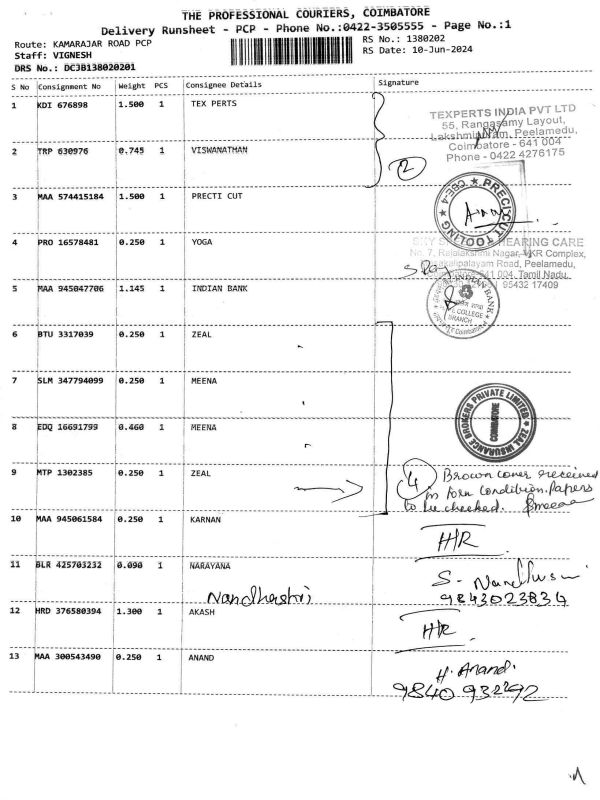 THE PROFESSIONAL COURIERS, COIMBATORE
Delivery Runsheet - PCP - Phone No.:0422-3505555 - Page No.:1
Route: KAMARAJAR ROAD PCP
RS No.: 1380202
Staff: VIGNESH
RS Date: 10-Jun-2024
DRS No.: DCJB138020201
S No Consignment No Weight PCS Consignee Details Signature
1 KDI 676898 1.500 1 TEX PERTS
TEXPERTS INDIA PVT LTD
55, Rangasamy Layout,
Peelamedu,
Coimbatore - 641 004
Phone - 0422 4276175
2 TRP 630976 0.745 1 VISWANATHAN
2
3 MAA 574415184 1.500 1 PRECTI CUT
PRECICUT TOOLING CBE-4
4 PRO 16578481 0.250 1 YOGA
HEARING CARE
No. 7, Rajalakshmi Nagar, VKR Complex,
Road, Peelamedu,
641 004. Tamil Nadu.
95432 17409
5 MAA 945047706 1.145 1 INDIAN BANK
INDIAN BANK
COLLEGE
BRANCH
6 BTU 3317039 0.250 1 ZEAL
7 SLM 347794099 0.250 1 MEENA
8 EDQ 16691799 0.460 1 MEENA
ZEAL INSURANCE BROKERS PRIVATE LIMITED
COIMBATORE
9 MTP 1302385 0.250 1 ZEAL
4 Brown cover received
in torn condition. Papers
to be checked.
10 MAA 945061584 0.250 1 KARNAN
H/R
11 BLR 425703232 0.090 1 NARAYANA
Nandhashri
S-
9843023834
12 HRD 376580394 1.300 1 AKASH
H/R
13 MAA 300543490 0.250 1 ANAND
H. Anand.
9840 932292